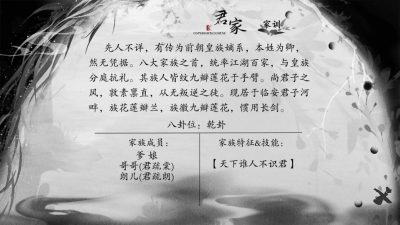 君家 家训
先人不详，有传为前朝皇族嫡系，本姓为卿，
然无凭据。八大家族之首，统率江湖百家，与皇族
分庭抗礼。其族人皆纹九瓣莲花于手臂。尚君子之
风，敦素禀直，从无叛逆之徒。现居于临安君子河
畔，族花莲瓣兰，族徽九瓣莲花，惯用长剑。
八卦位：乾卦
家族成员：
爹 娘
哥哥(君疏棠)
朗儿(君疏朗)
家族特征&技能：
【天下谁人不识君】